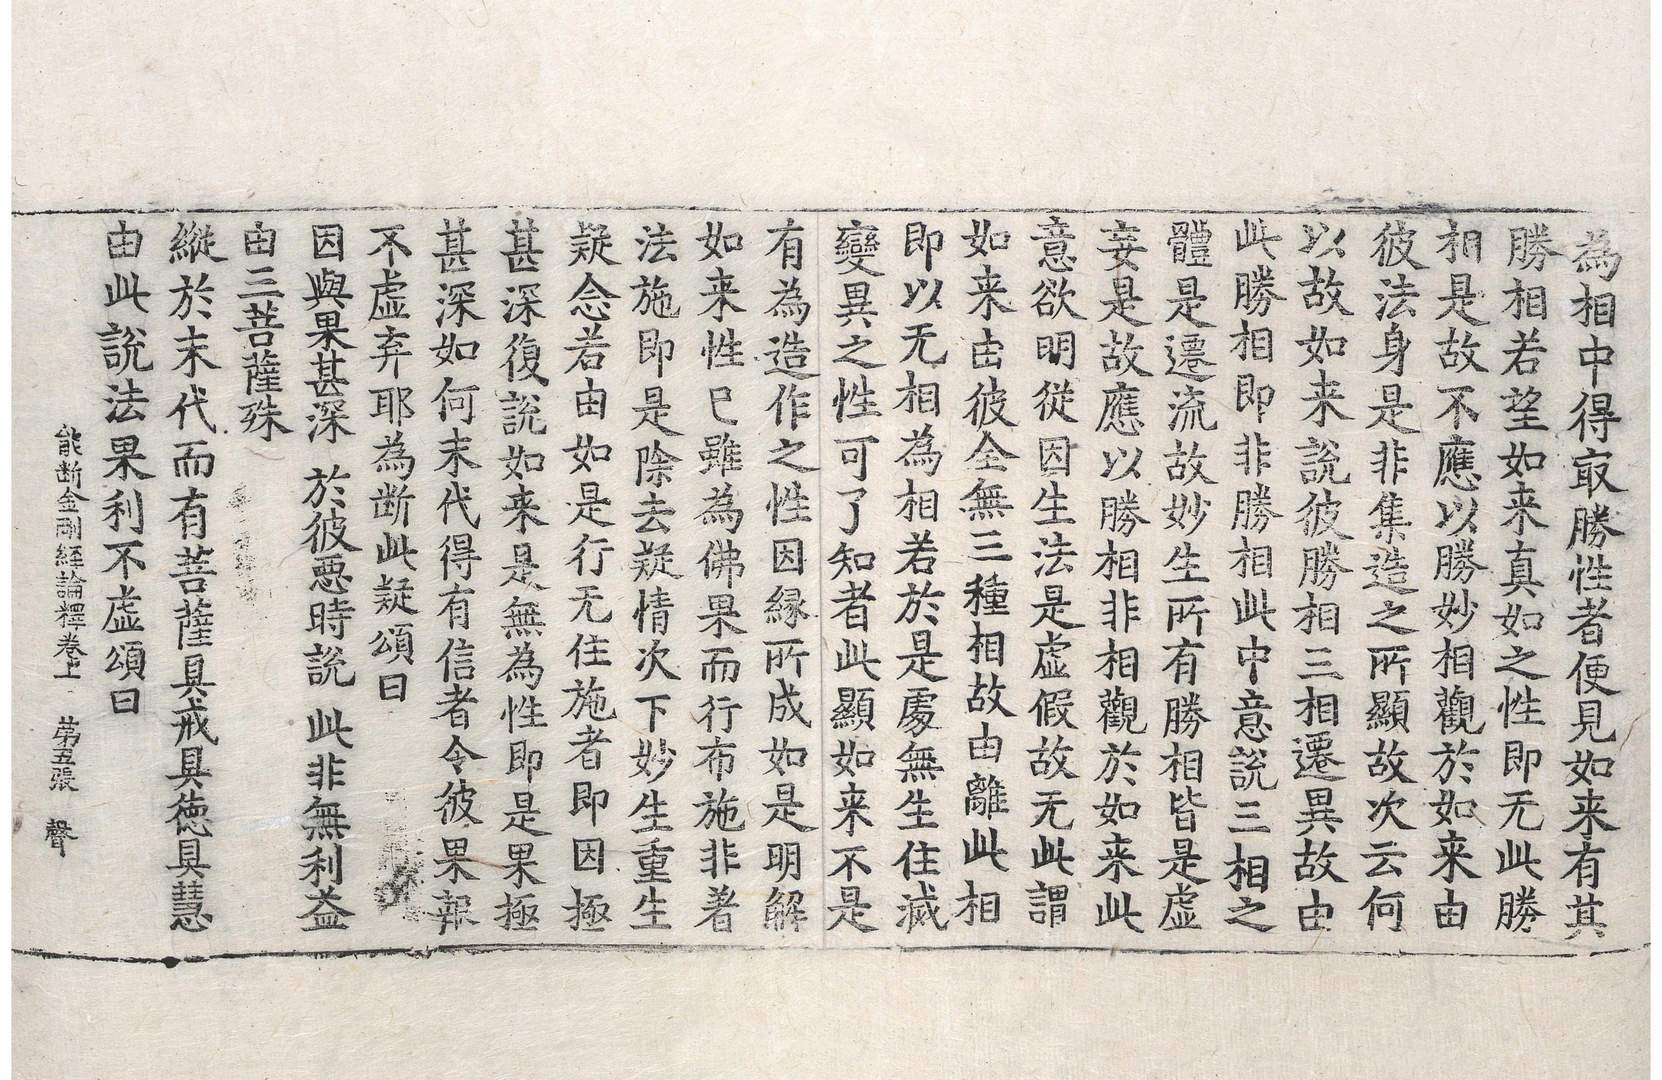 為相中得㝡勝性者便見如来有其
勝相若望如来真如之性即无此勝
相是故不應以勝妙相觀於如来由
彼法身是非集造之所顯故次云何
以故如来說彼勝相三相遷異故由
此勝相即非勝相此中意說三相之
體是遷流故妙生所有勝相皆是虛
妄是故應以勝相非相觀於如来此
意欲明從因生法是虛假故无此謂
如来由彼全無三種相故由離此相
即以无相為相若於是處無生住滅
變異之性可了知者此顯如来不是
有為造作之性因緣所成如是明解
如来性已雖為佛果而行布施非著
法施即是除去疑情次下妙生重生
疑念若由如是行无住施者即因極
甚深復說如来是無為性即是果極
甚深如何末代得有信者令彼果報
不虛弃耶為断此疑頌曰
因與果甚深 於彼惡時說 此非無利益
由三菩薩殊
縱於末代而有菩薩具戒具德具慧
由此說法果利不虛頌曰
能断金剛經論釋卷上 苐五張 聲